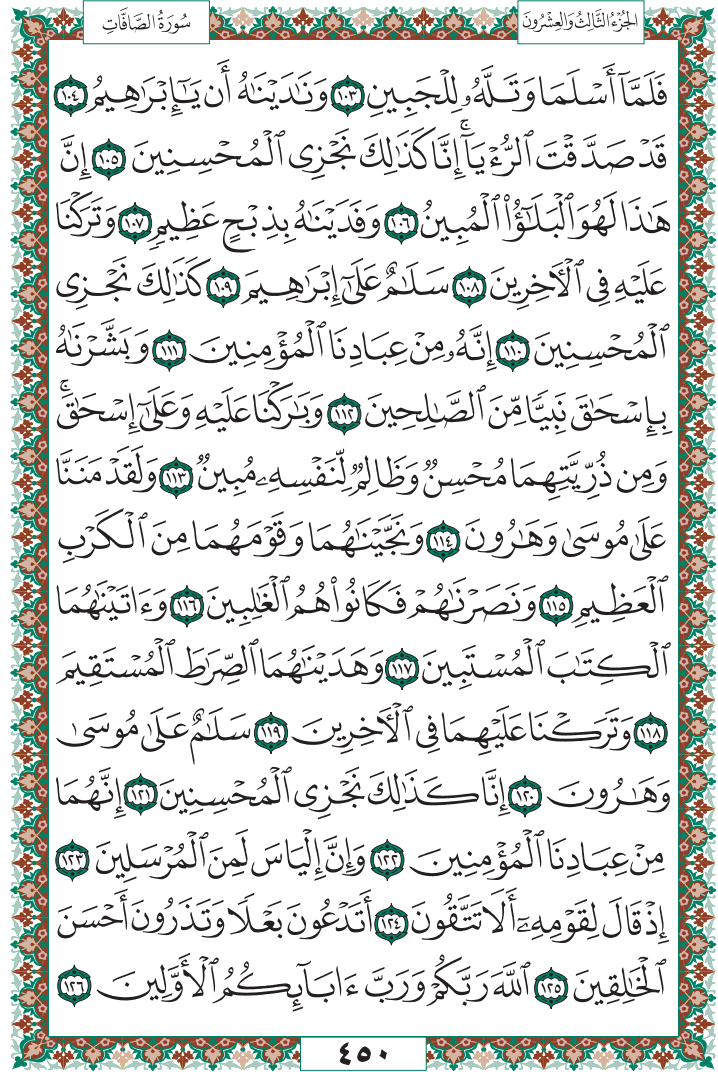 سُورَةُ الصَّافَّاتِ
الجُزْءُ الثَّالِثُ وَالعِشْرُونَ
فَلَمَّآ أَسْلَمَا وَتَلَّهُۥ لِلْجَبِينِ ١٠٣ وَنَٰدَيْنَٰهُ أَن يَٰٓإِبْرَٰهِيمُ ١٠٤
قَدْ صَدَّقْتَ ٱلرُّءْيَآۚ إِنَّا كَذَٰلِكَ نَجْزِى ٱلْمُحْسِنِينَ ١٠٥ إِنَّ
هَٰذَا لَهُوَ ٱلْبَلَٰٓؤُا۟ ٱلْمُبِينُ ١٠٦ وَفَدَيْنَٰهُ بِذِبْحٍ عَظِيمٍ ١٠٧ وَتَرَكْنَا
عَلَيْهِ فِى ٱلْأَخِرِينَ ١٠٨ سَلَٰمٌ عَلَىٰٓ إِبْرَٰهِيمَ ١٠٩ كَذَٰلِكَ نَجْزِى
ٱلْمُحْسِنِينَ ١١٠ إِنَّهُۥ مِنْ عِبَادِنَا ٱلْمُؤْمِنِينَ ١١١ وَبَشَّرْنَٰهُ
بِإِسْحَٰقَ نَبِيًّا مِّنَ ٱلصَّٰلِحِينَ ١١٢ وَبَٰرَكْنَا عَلَيْهِ وَعَلَىٰٓ إِسْحَٰقَۚ
وَمِن ذُرِّيَّتِهِمَا مُحْسِنٌ وَظَالِمٌ لِّنَفْسِهِۦ مُبِينٌ ١١٣ وَلَقَدْ مَنَنَّا
عَلَىٰ مُوسَىٰ وَهَٰرُونَ ١١٤ وَنَجَّيْنَٰهُمَا وَقَوْمَهُمَا مِنَ ٱلْكَرْبِ
ٱلْعَظِيمِ ١١٥ وَنَصَرْنَٰهُمْ فَكَانُوا۟ هُمُ ٱلْغَٰلِبِينَ ١١٦ وَءَاتَيْنَٰهُمَا
ٱلْكِتَٰبَ ٱلْمُسْتَبِينَ ١١٧ وَهَدَيْنَٰهُمَا ٱلصِّرَٰطَ ٱلْمُسْتَقِيمَ
١١٨ وَتَرَكْنَا عَلَيْهِمَا فِى ٱلْأَخِرِينَ ١١٩ سَلَٰمٌ عَلَىٰ مُوسَىٰ
وَهَٰرُونَ ١٢٠ إِنَّا كَذَٰلِكَ نَجْزِى ٱلْمُحْسِنِينَ ١٢١ إِنَّهُمَا
مِنْ عِبَادِنَا ٱلْمُؤْمِنِينَ ١٢٢ وَإِنَّ إِلْيَاسَ لَمِنَ ٱلْمُرْسَلِينَ ١٢٣
إِذْ قَالَ لِقَوْمِهِۦٓ أَلَا تَتَّقُونَ ١٢٤ أَتَدْعُونَ بَعْلًا وَتَذَرُونَ أَحْسَنَ
ٱلْخَٰلِقِينَ ١٢٥ ٱللَّهَ رَبَّكُمْ وَرَبَّ ءَابَآئِكُمُ ٱلْأَوَّلِينَ ١٢٦
٤٥٠